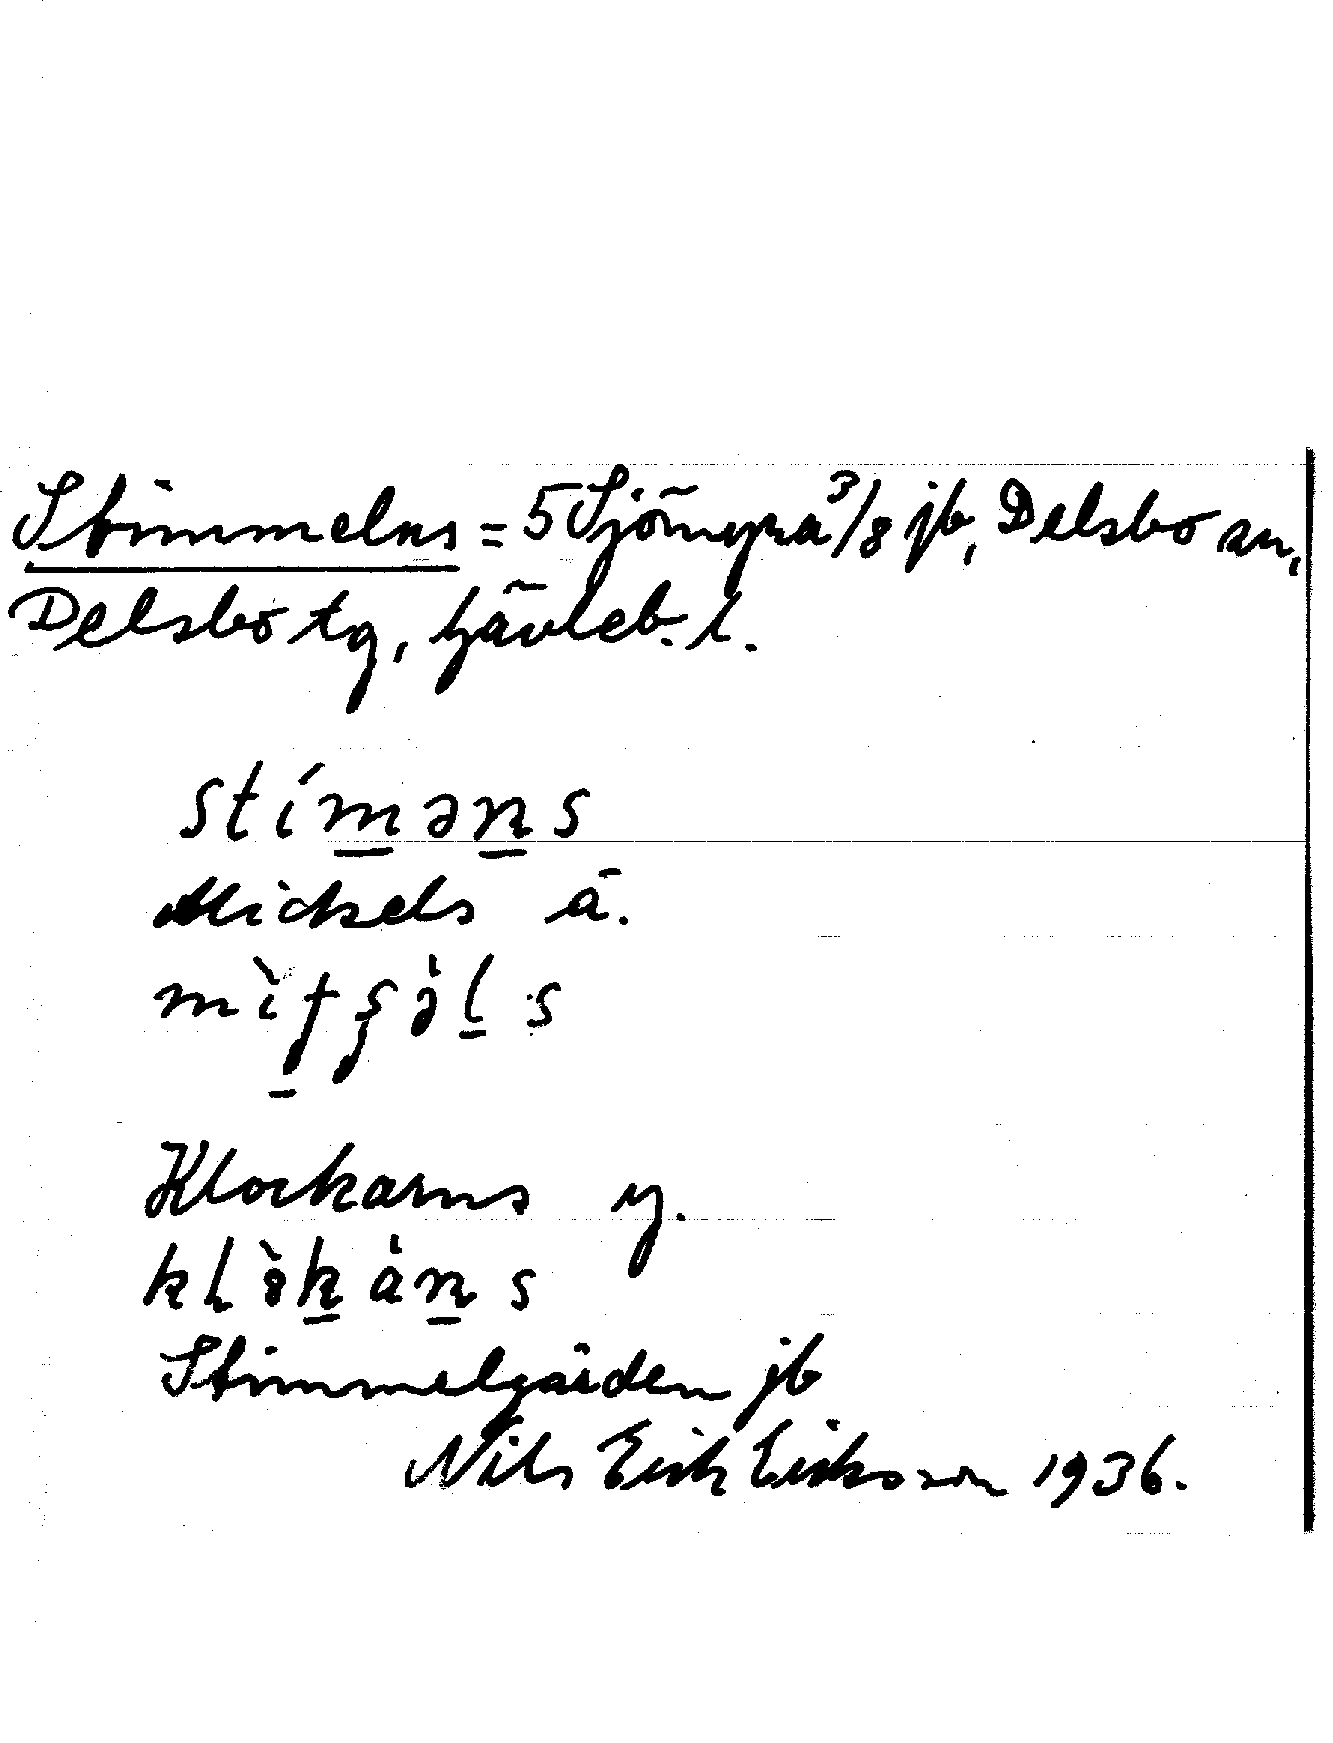 Stimmelns = 5 Sjömyra 3/8 jb, Delsbo sn,
Delsbo tg, Gävleb. l.
stíməns
Mickels ä.
mìţşə̀ls
Klockarns y.
klòkàns
Stimmelgården jb
Nils Erik Eriksson 1936.